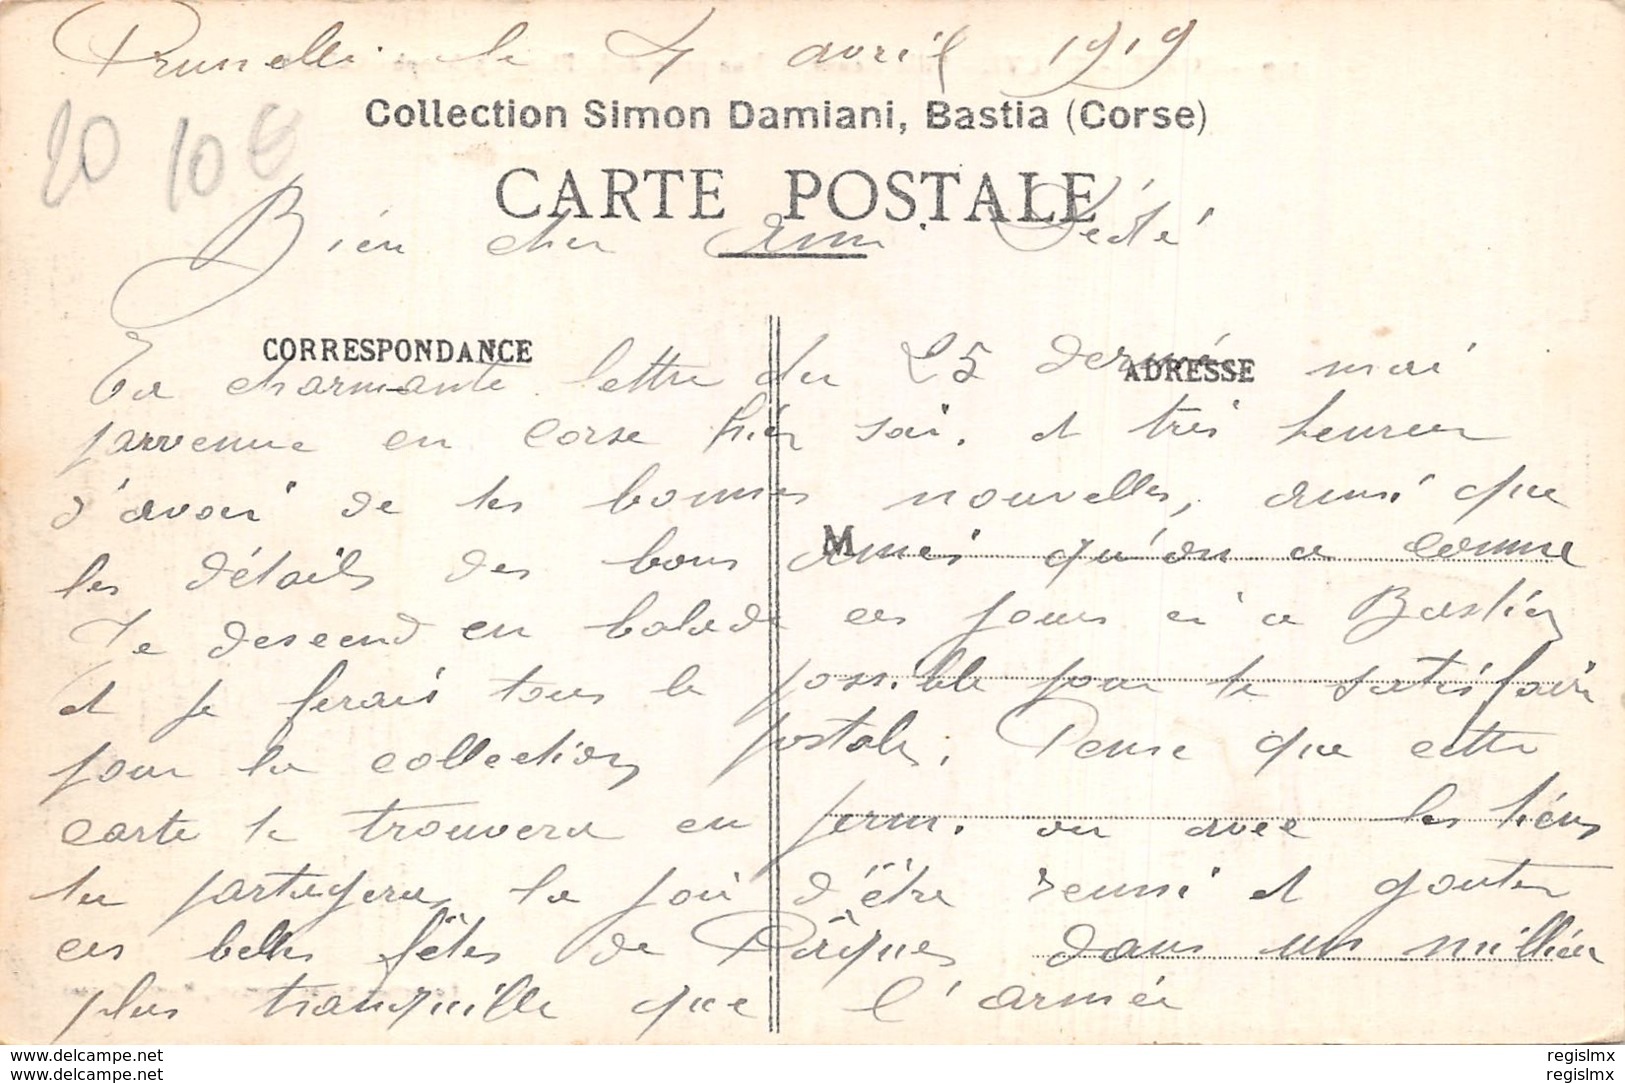 Prunelli le 4 avril 1919
Collection Simon Damiani, Bastia (Corse)
20 10€
CARTE POSTALE
Bien cher Ami
CORRESPONDANCE
ADRESSE
Ta charmante lettre du 25 dernié mai
parvenue en Corse hier soir. et très heureux
d'avoir de tes bonnes nouvelles, ainsi que
M
les détails des bons amis qu'on a connu
Je descend en balade ces jours ci a Bastia
et je ferais tous le possible pour te satisfair
pour la collection postale. Pense que cette
carte te trouvera en perm. ou avec les tiens
tu partagera la joi d'être reuni et gouter
ces belles fêtes de Pâques dans un millieu
plus tranquille que l'armée
delcampe.net
delcampe.com
regislmx
regislmx